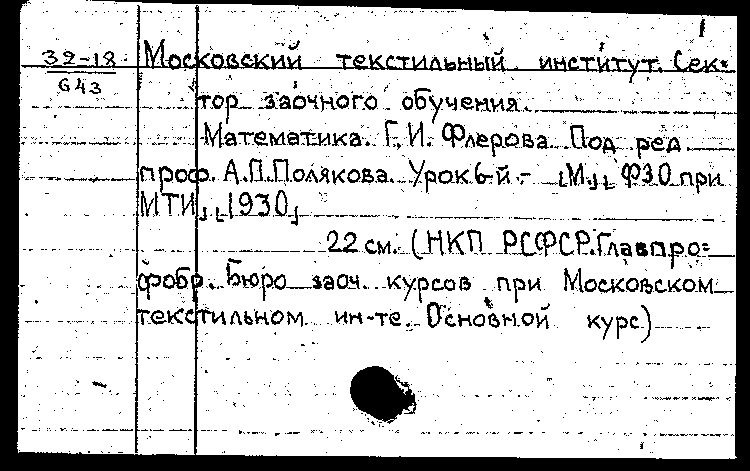 1
32-18
643
Московский текстильный институт. Сек=
тор заочного обучения.
Математика. Г. И. Флерова. Под ред.
проф. А.П.Полякова. Урок 6-й.- [М.], ФЗО при
МТИ], [1930]
22 см. (НКП РСФСР. Главпро=
фобр. Бюро заоч. курсов при Московском
текстильном ин-те. Основной курс)